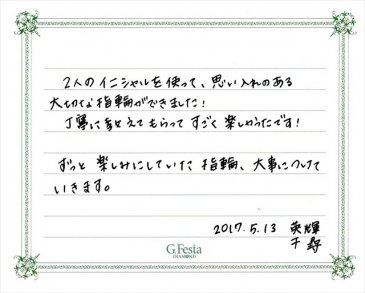 2人のイニシャルを使って、思い入れのある
大切な指輪ができました!
丁寧に教えてもらってすごく楽しかったです!
ずっと楽しみにしていた指輪、大事につけて
いきます。
2017.5.13 英輝
千尋
G.Festa
DIAMOND